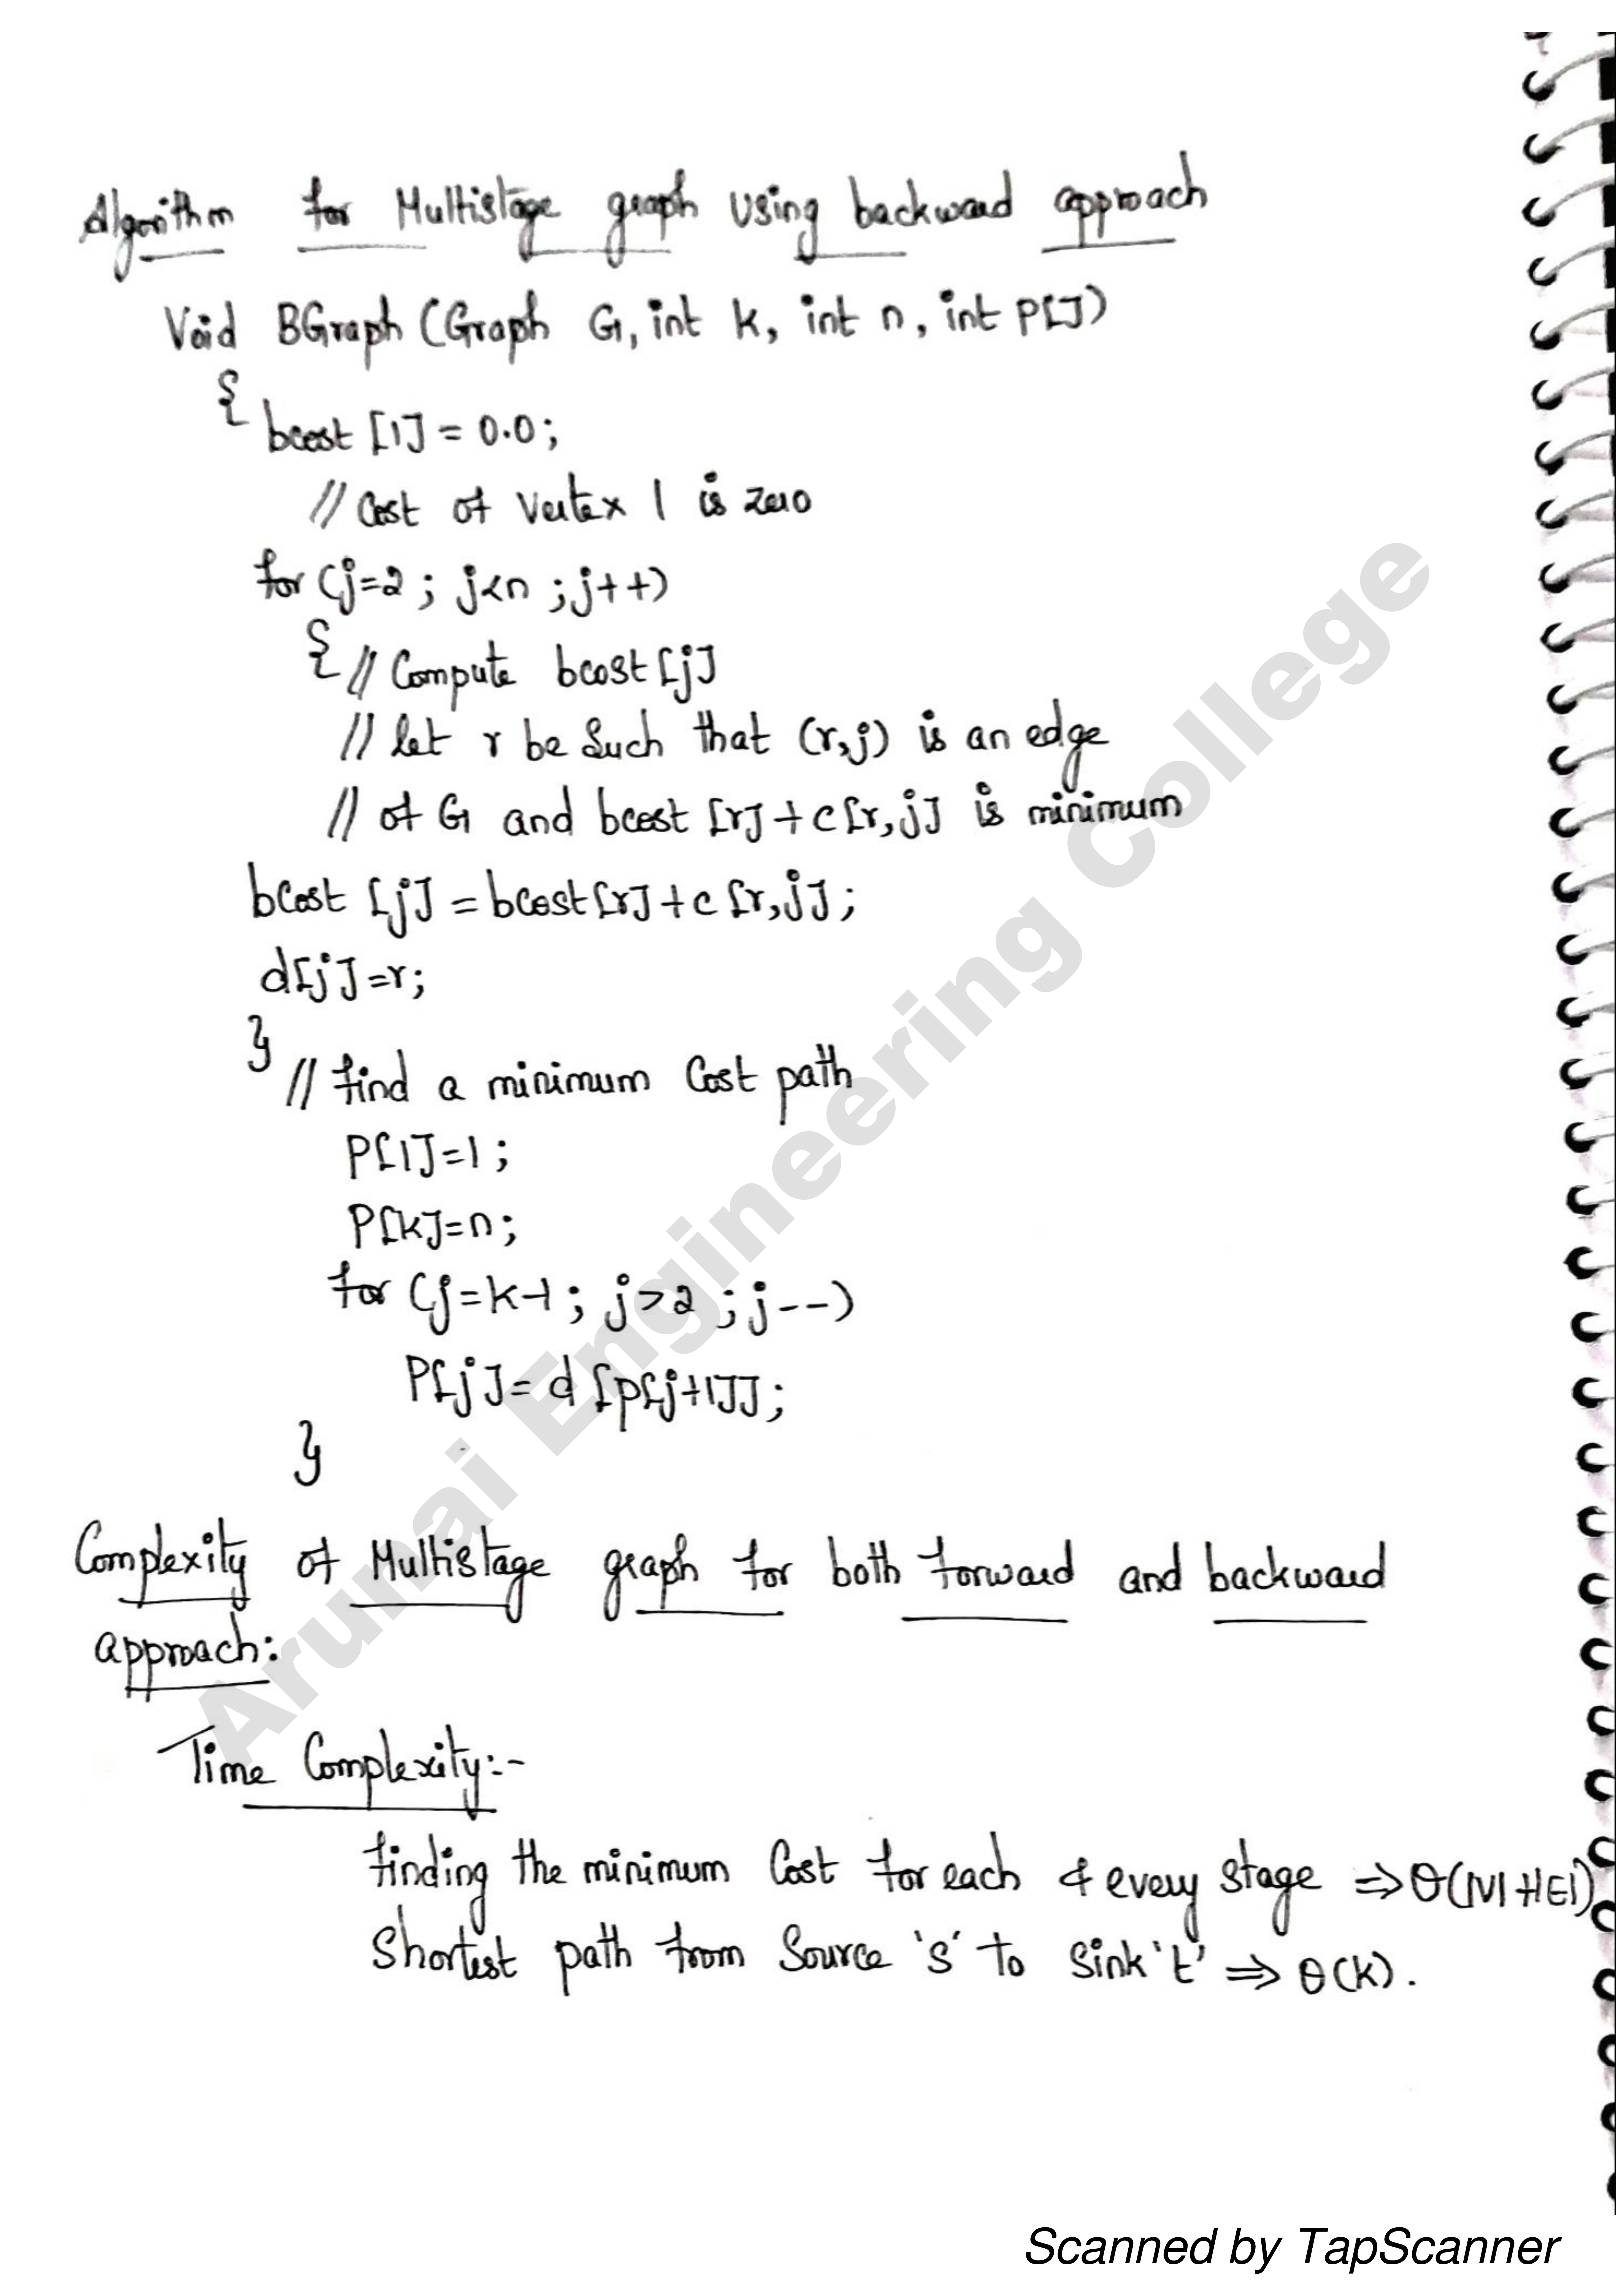 Algorithm for Multistage graph using backward approach
Void BGraph (Graph G, int k, int n, int P[])
{ bcost [1] = 0.0;
// Cost of Vertex 1 is zero
for (j=2 ; j<n ; j++)
{ // Compute bcost [j]
// let r be such that (r,j) is an edge
// of G and bcost [r] + c[r,j] is minimum
bcost [j] = bcost[r] + c [r,j];
d[j] = r;
}
// find a minimum Cost path
P[1]=1;
P[k]=n;
for (j=k-1; j>2 ; j--)
P[j]= d [p[j+1]];
}
Complexity of Multistage graph for both forward and backward
approach:
Time Complexity:-
finding the minimum Cost for each & every stage ⇒ θ(|V|+|E|)
Shortest path from Source 's' to sink 't' ⇒ θ(k).
Arunai Engineering College
Scanned by TapScanner